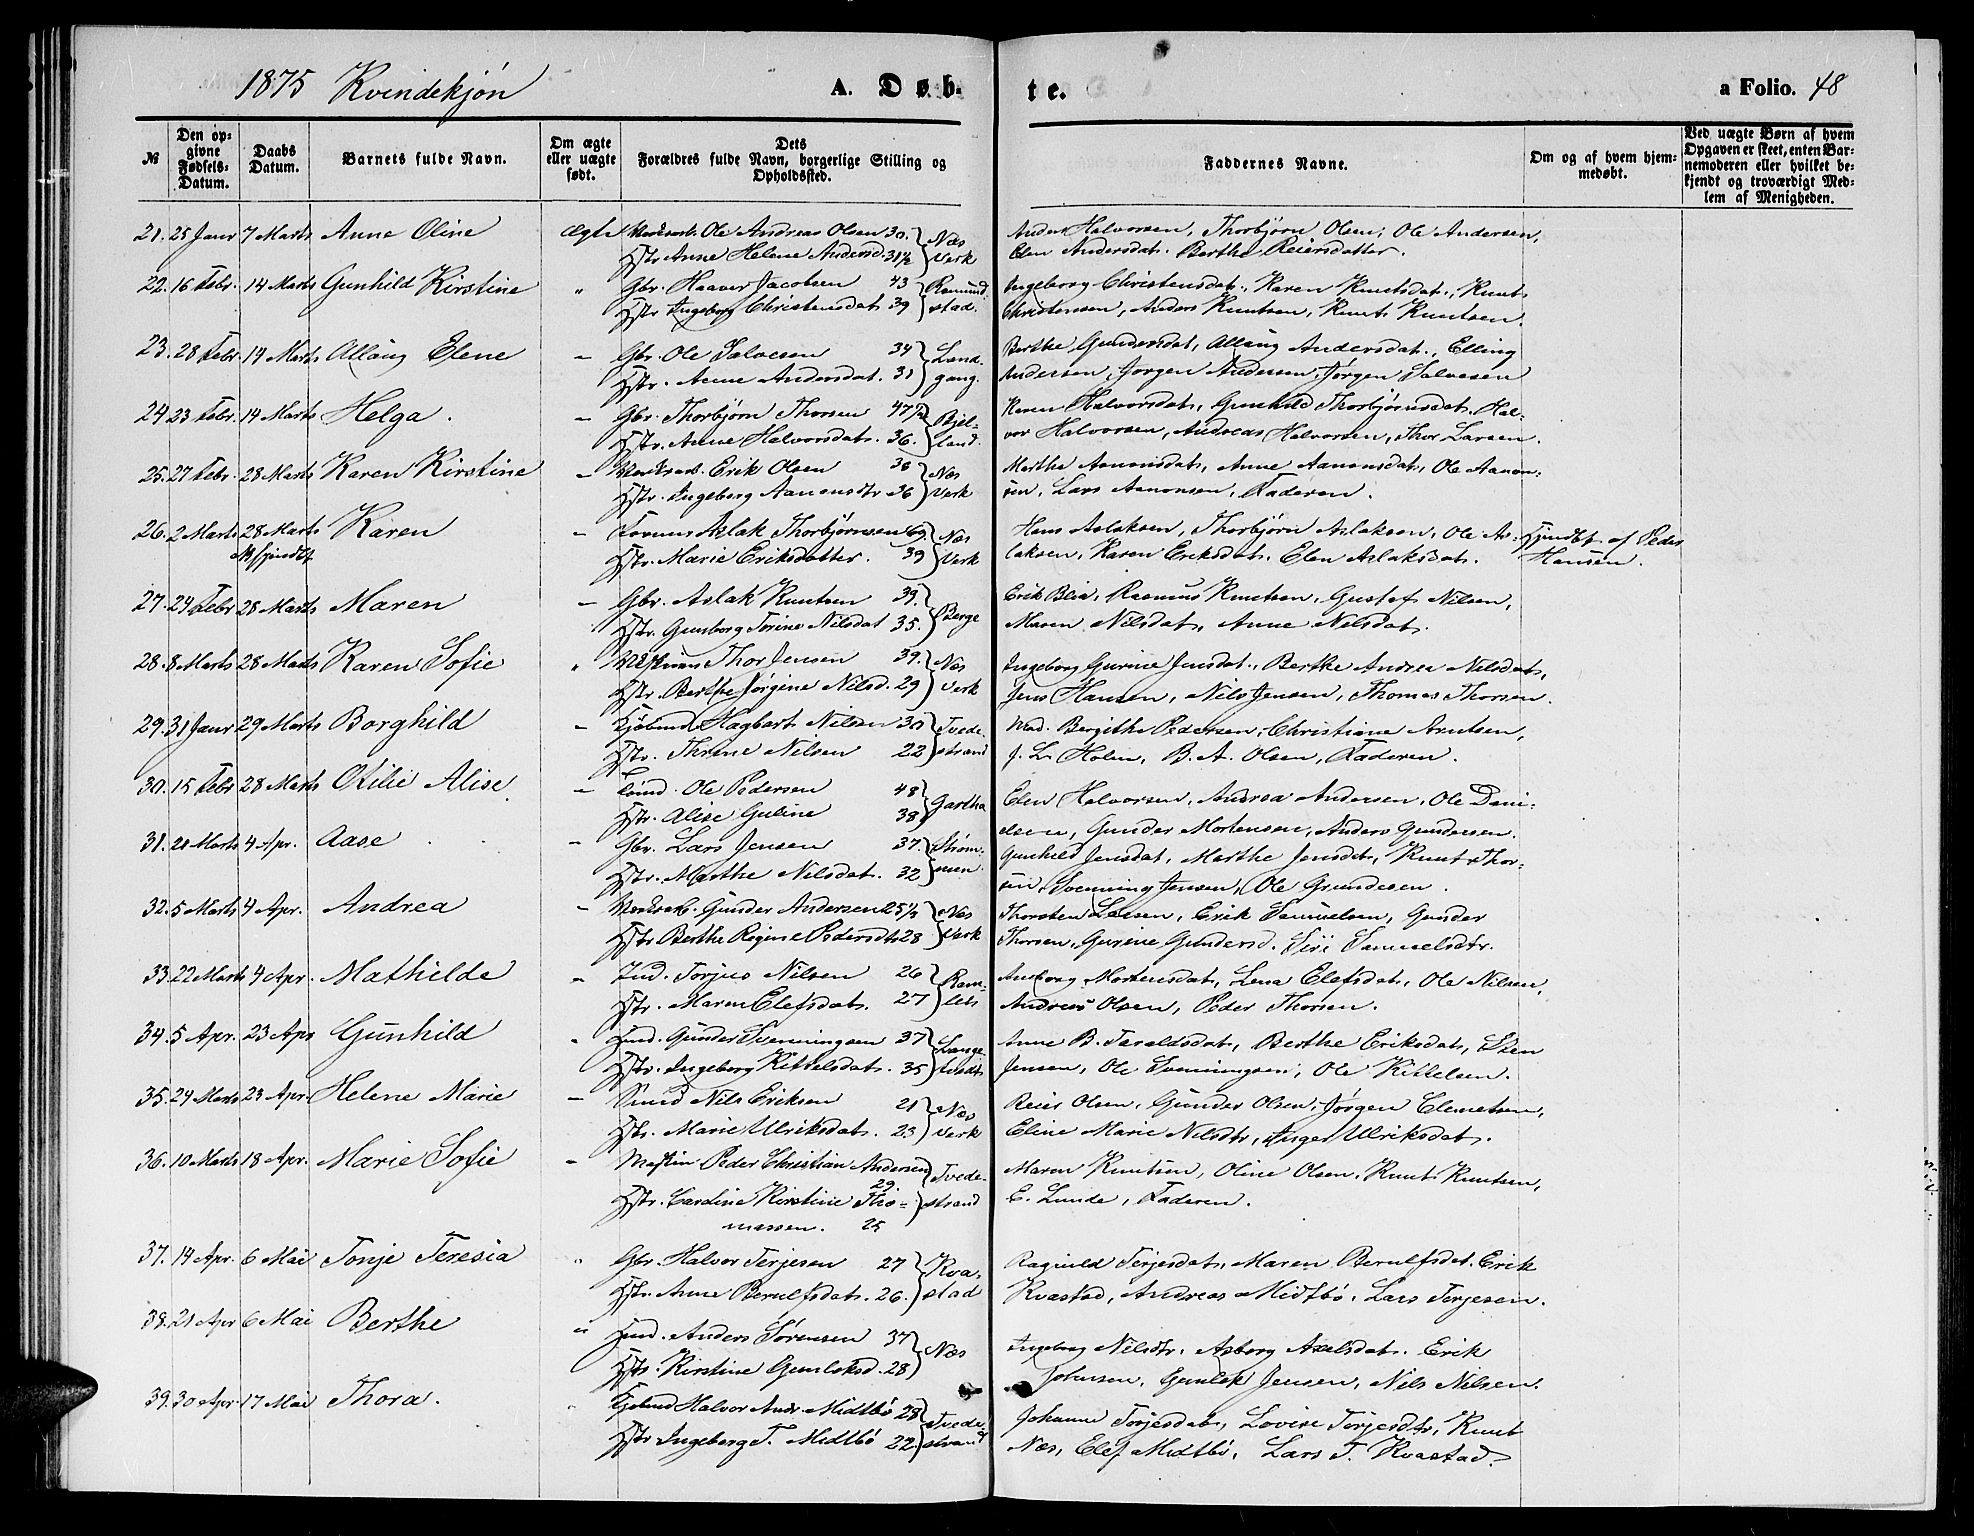 1875 Kvindekjøn A. Døb- te. a Folio. 48
№
Den op-
givne
Fødsels-
Datum.
Daabs
Datum.
Barnets fulde Navn.
Om ægte
eller uægte
født.
Dets
Forældres fulde Navn, borgerlige Stilling og
Opholdssted.
Faddernes Navne.
Om og af hvem hjem-
medøbt.
Ved uægte Børn af hvem
Opgaven er skeet, enten Bar-
nemoderen eller hvilket be-
kjendt og troværdigt Med-
lem af Menigheden.
21. 25 Janr 7 Marts Anne Oline ægte Verksarb. Ole Andreas Olsen 30. Næs Halvorsen, Thorbjørn Olsen, Ole Andersen,
Hstr Anne Helene Andersd. 31½ Verk Elen Andersdat. Berthe Reiersdatter.
22. 16 Febr. 14 Marts Gunhild Kirstine " Gbr. Haaver Jacobsen 43 Ramund- Ingeborg Christensdat., Karen Knutsdat., Knut
Hstr Ingeborg Christensdat 39 stad. Christensen, Anders Knutsen, Knut Knutsen.
23. 28 Febr. 14 Marts Allaug Elene - Gbr. Ole Salvesen 34 Land- Berthe Gundersdat, Allaug Andersdat., Elling
Hstr. Anne Andersdat. 31 gang. Andersen, Jørgen Andersen, Jørgen Salvesen
24 23 Febr. 14 Marts Helga. - Gbr. Thorbjørn Thorsen 47½ Bjel- Karen Halvorsdat, Gunhild Thorbjørnsdat. Hal-
Hstr. Anne Halvorsdat. 36. land. vor Halvorsen, Andreas Halvorsen, Thor Larsen.
25. 27 Febr. 28 Marts Karen Kirstine - Verksarb. Erik Olsen 36 Næs Marthe Aanonsdat, Anne Aanonsdat, Ole Aanon-
Hstr. Ingeborg Aanonsdtr 36 Verk sen, Lars Aanonsen, Faderen.
26. 2 Marts 28 Marts Karen - Aslak Thorbjørnsen 69 Næs Hans Aslaksen, Thorbjørn Aslaksen, Ole As- Hjemdbt. af Peder
Hstr. Marie Eriksdatter. 39 Verk laksen, Karen Eriksdat. Elen Aslaksdat. Hansen.
27. 24 Febr 28 Marts Maren - Gbr. Aslak Knutsen 39. Berge Erik Rasmus Knutsen, Gustaf Nilsen,
Hstr. Gunborg Torine Nilsdat 35. Maren Nilsdat, Anne Nilsdat.
28. 8 Marts 28 Marts Karen Sofie " Thor Jensen 39. Næs Ingeborg Gurine Jensdat., Berthe Andrea Nilsdat,
Hstr. Berthe Jørgine Nilsd. 29 Verk Jens Hansen, Nils Jensen, Thomas Thorsen.
29. 31 Janr 29 Marts Borghild - Kjøbmd Hagbart Nilsen 30 Tvede- Mad. Bergithe Pedersen, Christiane Arntsen,
Hstr. Thrine Nilsen 22 strand J. L. Holm, B. A. Olsen, Faderen.
30. 15 Febr 28 Marts Otilie Alise - Tømd. Ole Pedersen 48 Gartha Elen Halvorsen, Andrea Andersen, Ole Dani-
Hstr. Alise Guline 38 elsen, Gunder Mortensen, Anders Gundersen.
31. 21 Marts 4 Apr. Aase - Gbr. Lars Jensen 37. Strøm- Gunhild Jensdat, Marthe Jensdat, Knut Thor-
Hstr. Marthe Nilsdat. 32 men. sen, Svenning Jensen, Ole Gundesen.
32. 5 Marts 4 Apr. Andrea - Verksarb. Gunder Andersen 25½ Næs Thorsten Larsen, Erik Samuelsen, Gunder
Hstr Berthe Regine Pedersdtr 28 Verk Thorsen, Gurine Gundersd. Siri Samuelsdtr.
33. 22 Marts 4 Apr. Mathilde - Ind. Torjus Nilsen 26 Ram- Mortensdat, Lena Elefsdat, Ole Nilsen,
Hstr. Maren Elefsdat. 27 lets Andreas Olsen, Peder Thorsen.
34. 5 Apr. 23 Apr Gunhild " Gunder Svenningsen 37 Lange- Anne B. Taraldsdat, Berthe Eriksdat, Sten
Hstr. Ingeborg Kittelsdat. 35 tvedt Jensen, Ole Svenningsen, Ole Kittelsen.
35. 24 Marts 23 Apr. Helene Marie - Smed Nils Eriksen 21 Næs Reier Olsen, Gunder Olsen, Jørgen Clemetsen,
Hstr. Marie Ulriksdat. 23 Verk Eline Marie Nilsdtr, Inger Ulriksdat.
36. 10 Marts 18 Apr. Marie Sofie - Peder Christian Andersen Tvede- Maren Knutsen, Oline Olsen, Knut Knutsen,
29
Hstr. Cardine Kirstine Tho- strand E. Lunde, Faderen.
massen. 25
37. 14 Apr. 6 Mai Tonje Teresia " Gbr. Halvor Terjesen 27 Kva- Ragnild Terjesdat, Maren Berulfsdat. Erik
Hstr. Anne Berulfsdat. 26. stad Kvastad, Andreas Midtbø, Lars Terjesen.
38. 21 Apr 6 Mai Berthe " Anders Sørensen 37 Næs Ingeborg Nilsdtr. Asborg Axelsdat. Erik
Hstr. Kirstine Gunleksd. 28 Johnsen, Gunlek Jensen, Nils Nilsen.
39. 30 Apr. 17 Mai Thora. " Kjøbmd Halvor Andr. Midtbø 28 Tvede- Johanne Terjesdat, Lovise Terjesdtr, Knut
Hstr Ingeborg T. Midtbø 22. strand Næs, Elef Midtbø, Lars T. Kvastad.